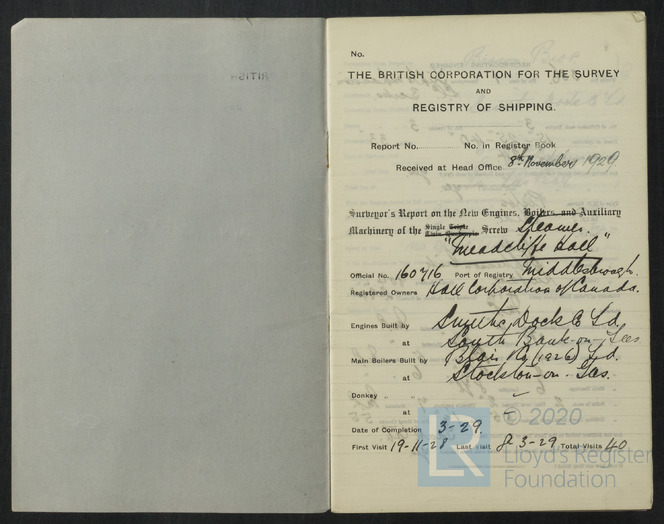 No.
THE BRITISH CORPORATION FOR THE SURVEY
AND
REGISTRY OF SHIPPING.
Report No. No. in Register Book
Received at Head Office 8th November 1929
Surveyor's Report on the New Engines, Boilers, and Auxiliary
Machinery of the Single Triple Twin Quadruple Screw Steamer
"Meadcliffe Hall"
Official No. 160716 Port of Registry Middlesbrough.
Registered Owners Hall Corporation of Canada.
Engines Built by Smiths Dock Co Ld.
at South Bank-on-Tees
Main Boilers Built by Blair & Co (1926) Ld.
at Stockton-on-Tees.
Donkey " "
at -
Date of Completion 3-29.
First Visit 19-11-28 Last Visit 8-3-29 Total Visits 40
© 2020
LR Lloyd's Register
Foundation